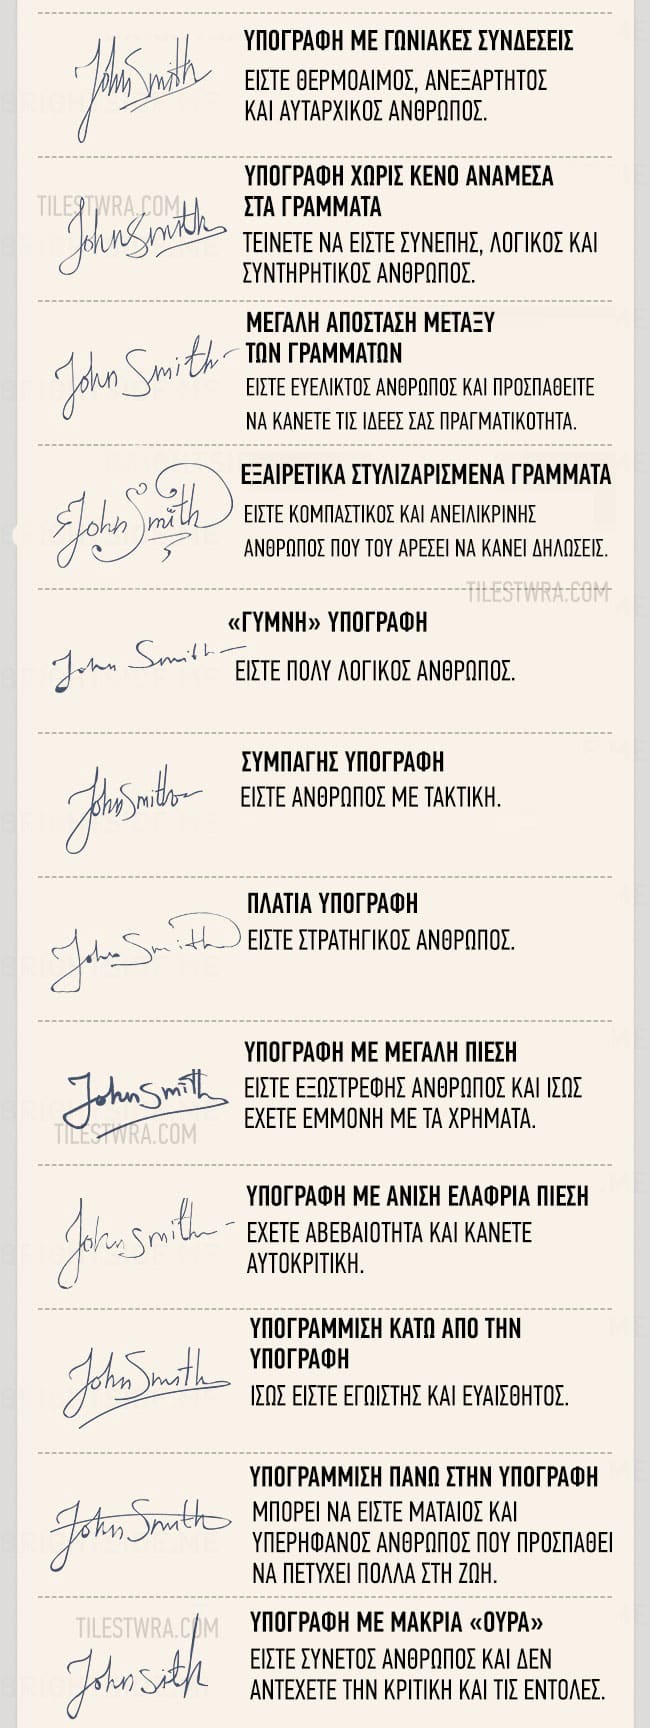 John Smith
ΥΠΟΓΡΑΦΗ ΜΕ ΓΩΝΙΑΚΕΣ ΣΥΝΔΕΣΕΙΣ
ΕΙΣΤΕ ΘΕΡΜΟΑΙΜΟΣ, ΑΝΕΞΑΡΤΗΤΟΣ
ΚΑΙ ΑΥΤΑΡΧΙΚΟΣ ΑΝΘΡΩΠΟΣ.
TILESTWRA.COM
JohnSmith
ΥΠΟΓΡΑΦΗ ΧΩΡΙΣ ΚΕΝΟ ΑΝΑΜΕΣΑ
ΣΤΑ ΓΡΑΜΜΑΤΑ
ΤΕΙΝΕΤΕ ΝΑ ΕΙΣΤΕ ΣΥΝΕΠΗΣ, ΛΟΓΙΚΟΣ ΚΑΙ
ΣΥΝΤΗΡΗΤΙΚΟΣ ΑΝΘΡΩΠΟΣ.
John Smith
ΜΕΓΑΛΗ ΑΠΟΣΤΑΣΗ ΜΕΤΑΞΥ
ΤΩΝ ΓΡΑΜΜΑΤΩΝ
ΕΙΣΤΕ ΕΥΕΛΙΚΤΟΣ ΑΝΘΡΩΠΟΣ ΚΑΙ ΠΡΟΣΠΑΘΕΙΤΕ
ΝΑ ΚΑΝΕΤΕ ΤΙΣ ΙΔΕΕΣ ΣΑΣ ΠΡΑΓΜΑΤΙΚΟΤΗΤΑ.
John Smith
ΕΞΑΙΡΕΤΙΚΑ ΣΤΥΛΙΖΑΡΙΣΜΕΝΑ ΓΡΑΜΜΑΤΑ
ΕΙΣΤΕ ΚΟΜΠΑΣΤΙΚΟΣ ΚΑΙ ΑΝΕΙΛΙΚΡΙΝΗΣ
ΑΝΘΡΩΠΟΣ ΠΟΥ ΤΟΥ ΑΡΕΣΕΙ ΝΑ ΚΑΝΕΙ ΔΗΛΩΣΕΙΣ.
TILESTWRA.COM
John Smith
«ΓΥΜΝΗ» ΥΠΟΓΡΑΦΗ
ΕΙΣΤΕ ΠΟΛΥ ΛΟΓΙΚΟΣ ΑΝΘΡΩΠΟΣ.
JohnSmith
ΣΥΜΠΑΓΗΣ ΥΠΟΓΡΑΦΗ
ΕΙΣΤΕ ΑΝΘΡΩΠΟΣ ΜΕ ΤΑΚΤΙΚΗ.
John Smith
ΠΛΑΤΙΑ ΥΠΟΓΡΑΦΗ
ΕΙΣΤΕ ΣΤΡΑΤΗΓΙΚΟΣ ΑΝΘΡΩΠΟΣ.
John Smith
ΥΠΟΓΡΑΦΗ ΜΕ ΜΕΓΑΛΗ ΠΙΕΣΗ
ΕΙΣΤΕ ΕΞΩΣΤΡΕΦΗΣ ΑΝΘΡΩΠΟΣ ΚΑΙ ΙΣΩΣ
ΕΧΕΤΕ ΕΜΜΟΝΗ ΜΕ ΤΑ ΧΡΗΜΑΤΑ.
TILESTWRA.COM
John Smith
ΥΠΟΓΡΑΦΗ ΜΕ ΑΝΙΣΗ ΕΛΑΦΡΙΑ ΠΙΕΣΗ
ΕΧΕΤΕ ΑΒΕΒΑΙΟΤΗΤΑ ΚΑΙ ΚΑΝΕΤΕ
ΑΥΤΟΚΡΙΤΙΚΗ.
John Smith
ΥΠΟΓΡΑΜΜΙΣΗ ΚΑΤΩ ΑΠΟ ΤΗΝ
ΥΠΟΓΡΑΦΗ
ΙΣΩΣ ΕΙΣΤΕ ΕΓΩΙΣΤΗΣ ΚΑΙ ΕΥΑΙΣΘΗΤΟΣ.
John Smith
ΥΠΟΓΡΑΜΜΙΣΗ ΠΑΝΩ ΣΤΗΝ ΥΠΟΓΡΑΦΗ
ΜΠΟΡΕΙ ΝΑ ΕΙΣΤΕ ΜΑΤΑΙΟΣ ΚΑΙ
ΥΠΕΡΗΦΑΝΟΣ ΑΝΘΡΩΠΟΣ ΠΟΥ ΠΡΟΣΠΑΘΕΙ
ΝΑ ΠΕΤΥΧΕΙ ΠΟΛΛΑ ΣΤΗ ΖΩΗ.
TILESTWRA.COM
Johnsith
ΥΠΟΓΡΑΦΗ ΜΕ ΜΑΚΡΙΑ «ΟΥΡΑ»
ΕΙΣΤΕ ΣΥΝΕΤΟΣ ΑΝΘΡΩΠΟΣ ΚΑΙ ΔΕΝ
ΑΝΤΕΧΕΤΕ ΤΗΝ ΚΡΙΤΙΚΗ ΚΑΙ ΤΙΣ ΕΝΤΟΛΕΣ.